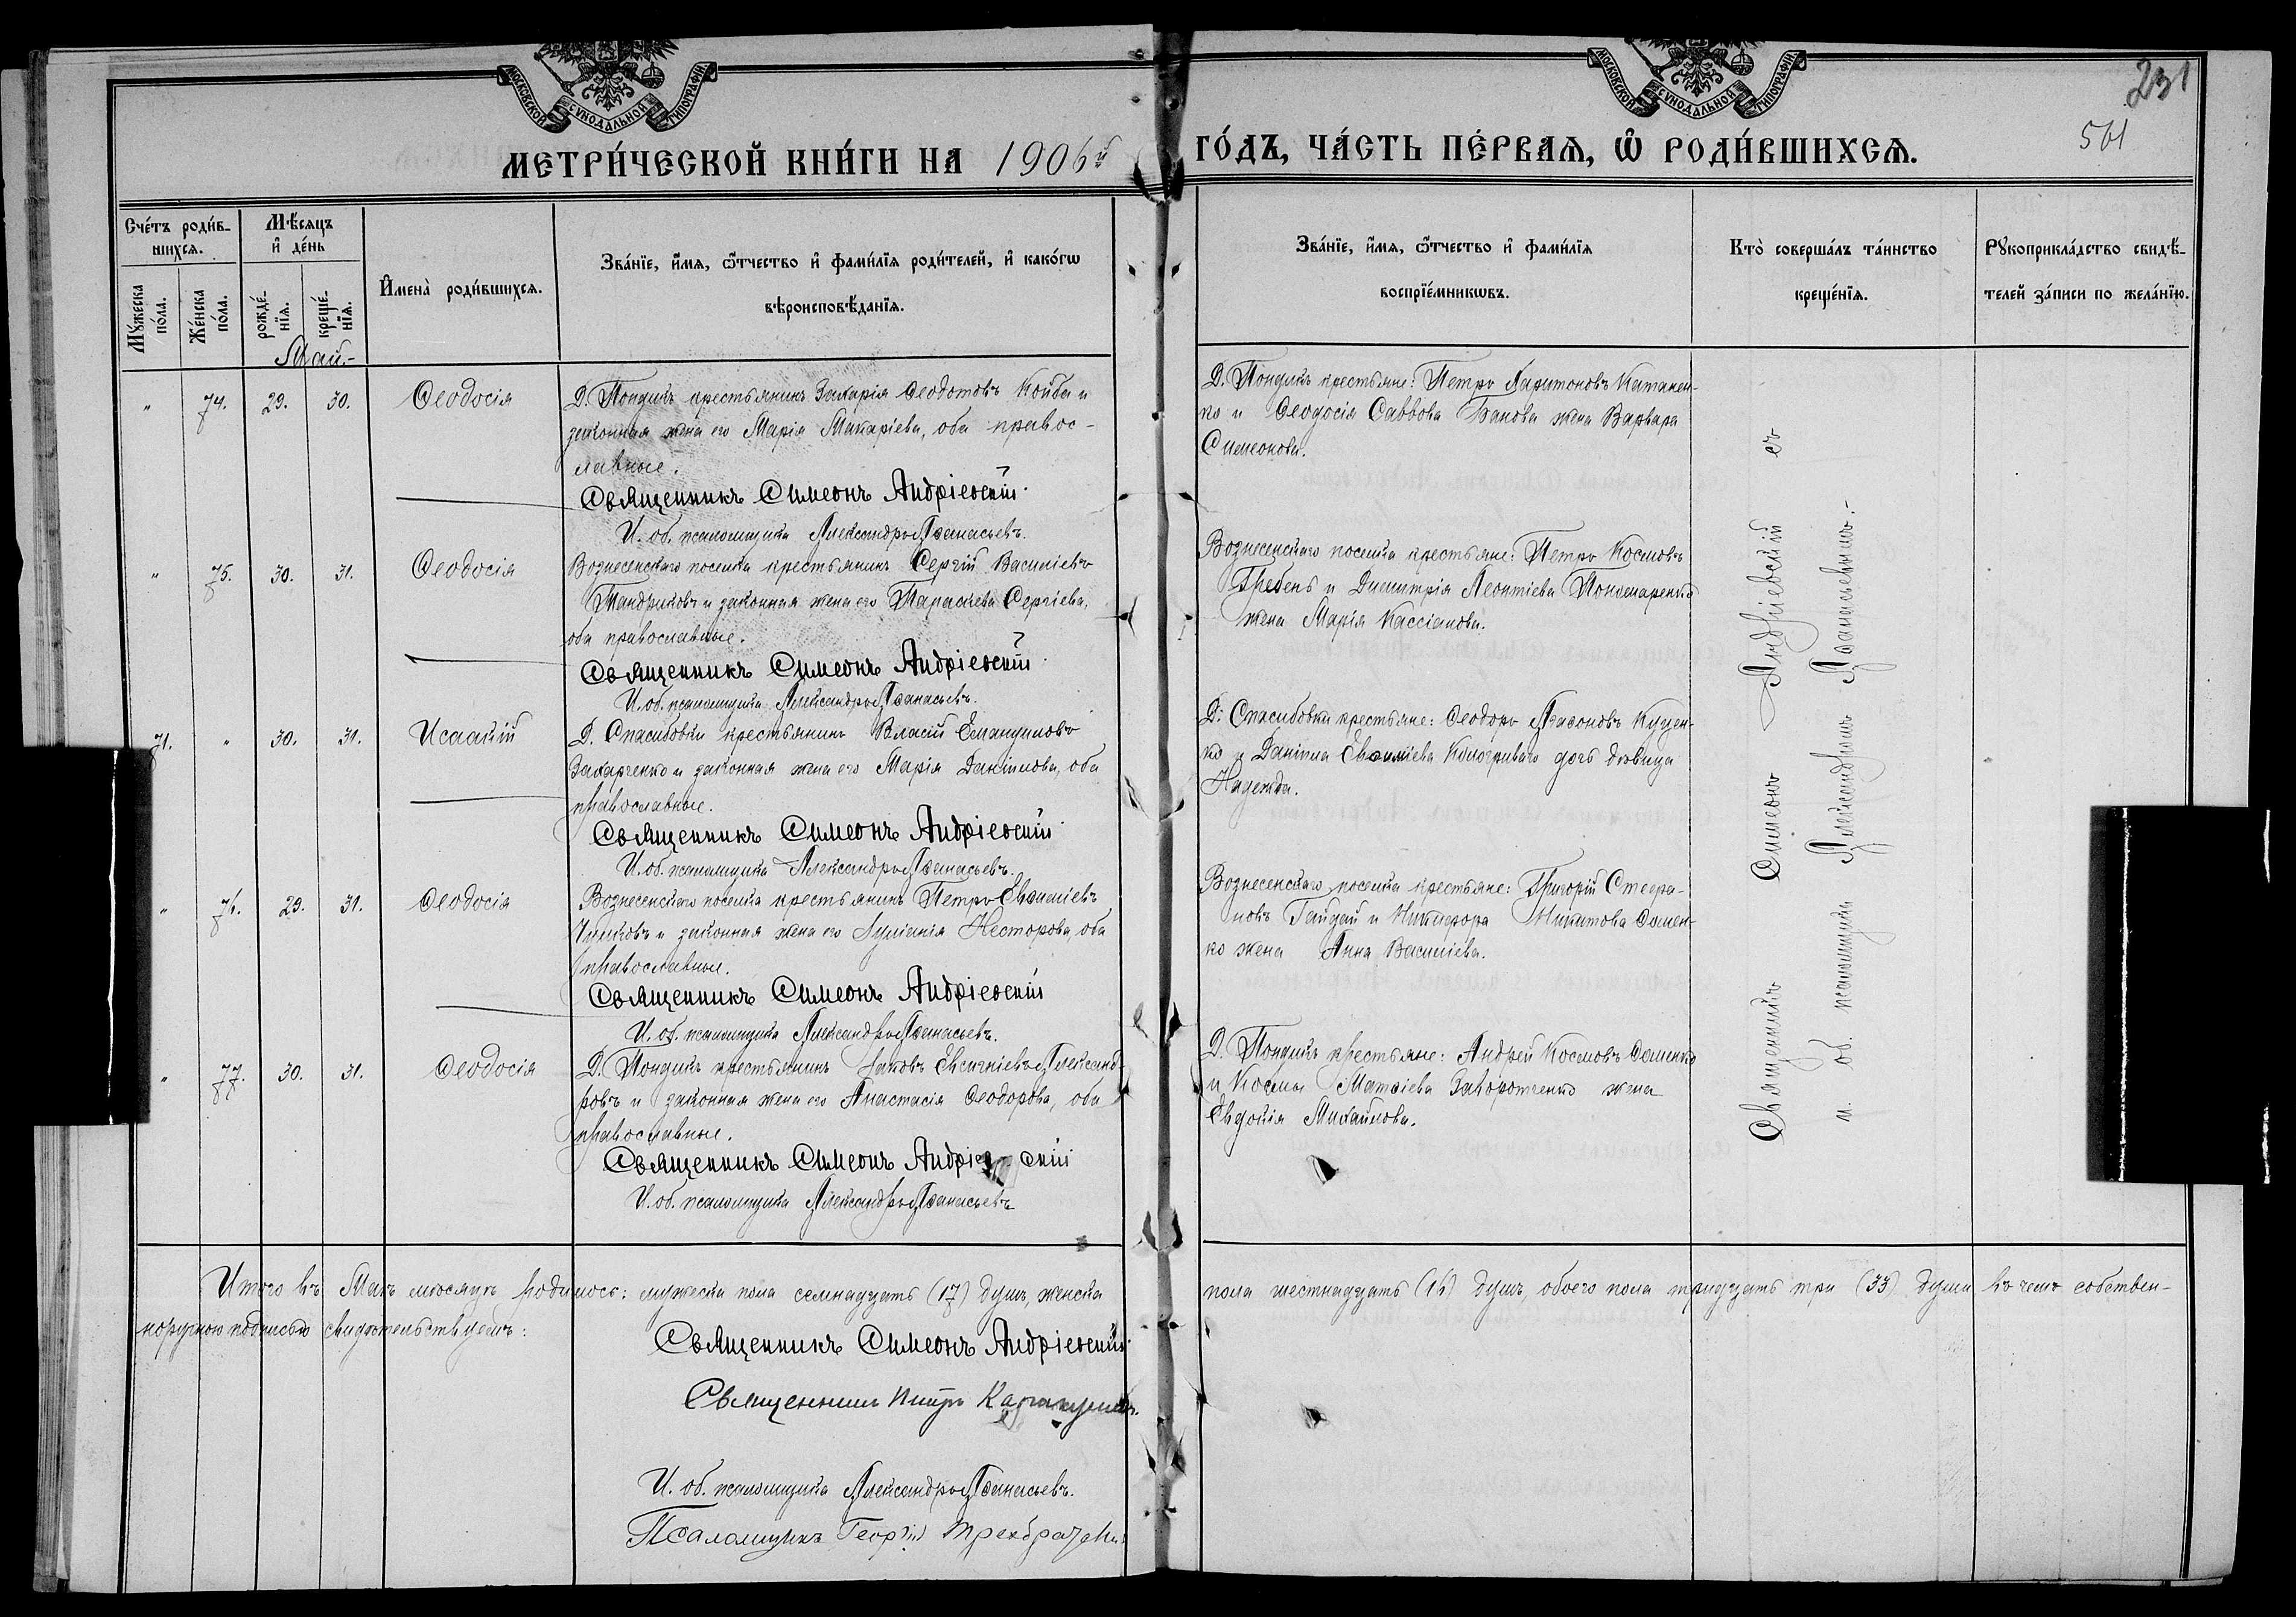 МОСКОВСКОЙ СУНОДАЛЬНОЙ ТИПОГРАФІИ.
МОСКОВСКОЙ СУНОДАЛЬНОЙ ТИПОГРАФІИ.
231
561
МЕТРИ́ЧЕСКОЙ КНИ́ГИ НА 1906й ГО́ДЪ, ЧА́СТЬ ПЕ́РВАЯ, Ѡ РОДИ́ВШИХСЯ.
Сче́тъ роди́в-
шихся.
Мꙋ́жеска по́ла.
Же́нска по́ла.
Мѣ́сяцъ и҆ де́нь
рожде́-
нїя.
креще́-
нїя.
И҆мена̀ роди́вшихся.
Зва́нїе, и҆́мя, ѻ҆́тчество и҆ фами́лїя роди́телей, и҆ како́гѡ
вѣроисповѣ́данїя.
Зва́нїе, и҆́мя, ѻ҆́тчество и҆ фами́лїя
воспрїе́мникѡвъ.
Кто̀ соверша́лъ та́инство
креще́нїя.
Рꙋкоприкла́дство свидѣ́-
телей за́писи по жела́нїю.
Май.-
" 74. 29. 30. Ѳеодосія
Д. Пондикъ крестьянинъ Захарія Ѳеодотовъ Койба и
законная жена его Марія Макаріева, оба правос-
лавные.
Священникъ Симеонъ Андріевскій
И. об. псаломщика Александръ Аѳанасьевъ.
Д. Пондикъ крестьяне: Петръ Харитоновъ
ко и Ѳеодосія Саввова жена Варвара
Симеонова.
" 75. 30. 31. Ѳеодосія
Вознесенскаго поселка крестьянинъ Сергій Василіевъ
Тандриковъ и законная жена его Параскева Сергіева,
оба православные.
Священникъ Симеонъ Андріевскій
И. об. псаломщика Александръ Аѳанасьевъ.
Вознесенскаго поселка крестьяне: Петръ Космовъ
Гребень и Димитрія Леонтіева Пономаренко
жена Марія Кассіанова.
71. " 30. 31. Исаакій
Д. Спасибовки крестьянинъ Власій Емануиловъ
Захарченко и законная жена его Марія Даніилова, оба
православные.
Священникъ Симеонъ Андріевскій
И. об. псаломщика Александръ Аѳанасьевъ.
Д. Спасибовки крестьяне: Ѳеодоръ Агаѳоновъ Куцен-
ко и Даніила Евѳиміева Кологриваго дочь дѣвица
Надежда.
" 76. 29. 31. Ѳеодосія
Вознесенскаго поселка крестьянинъ Петръ Евѳиміевъ
и законная жена его Іуліанія Несторова, оба
православные.
Священникъ Симеонъ Андріевскій
И. об. псаломщика Александръ Аѳанасьевъ.
Вознесенскаго поселка крестьяне: Григорій Стефа-
новъ Гайдай и Никифора Никитова Ѳомен-
ко жена Анна Василіева.
" 77. 30. 31. Ѳеодосія
Д. Пондикъ крестьянинъ Іаковъ Евсигніевъ Александ-
ровъ и законная жена его Анастасія Ѳеодорова, оба
православные.
Священникъ Симеонъ Андріевскій
И. об. псаломщика Александръ Аѳанасьевъ
Д. Пондикъ крестьяне: Андрей Космовъ Ѳоменко
и Космы Матѳіева Заворотченко жена
Евдокія Михайлова.
Священникъ Симеонъ Андріевскій съ
и. об. псаломщика Александромъ Аѳанасьевымъ.-
Итого въ Маѣ мѣсяцѣ родилось: мужеска пола семнадцать (17) душъ, женска пола шестнадцать (16) душъ, обоего пола тридцать три (33) души въ чемъ собствен-
норучною подписью свидѣтельствуемъ:
Священникъ Симеонъ Андріевскій
Священникъ Петръ
И. об. псаломщика Александръ Аѳанасьевъ.
Псаломщикъ Георгій